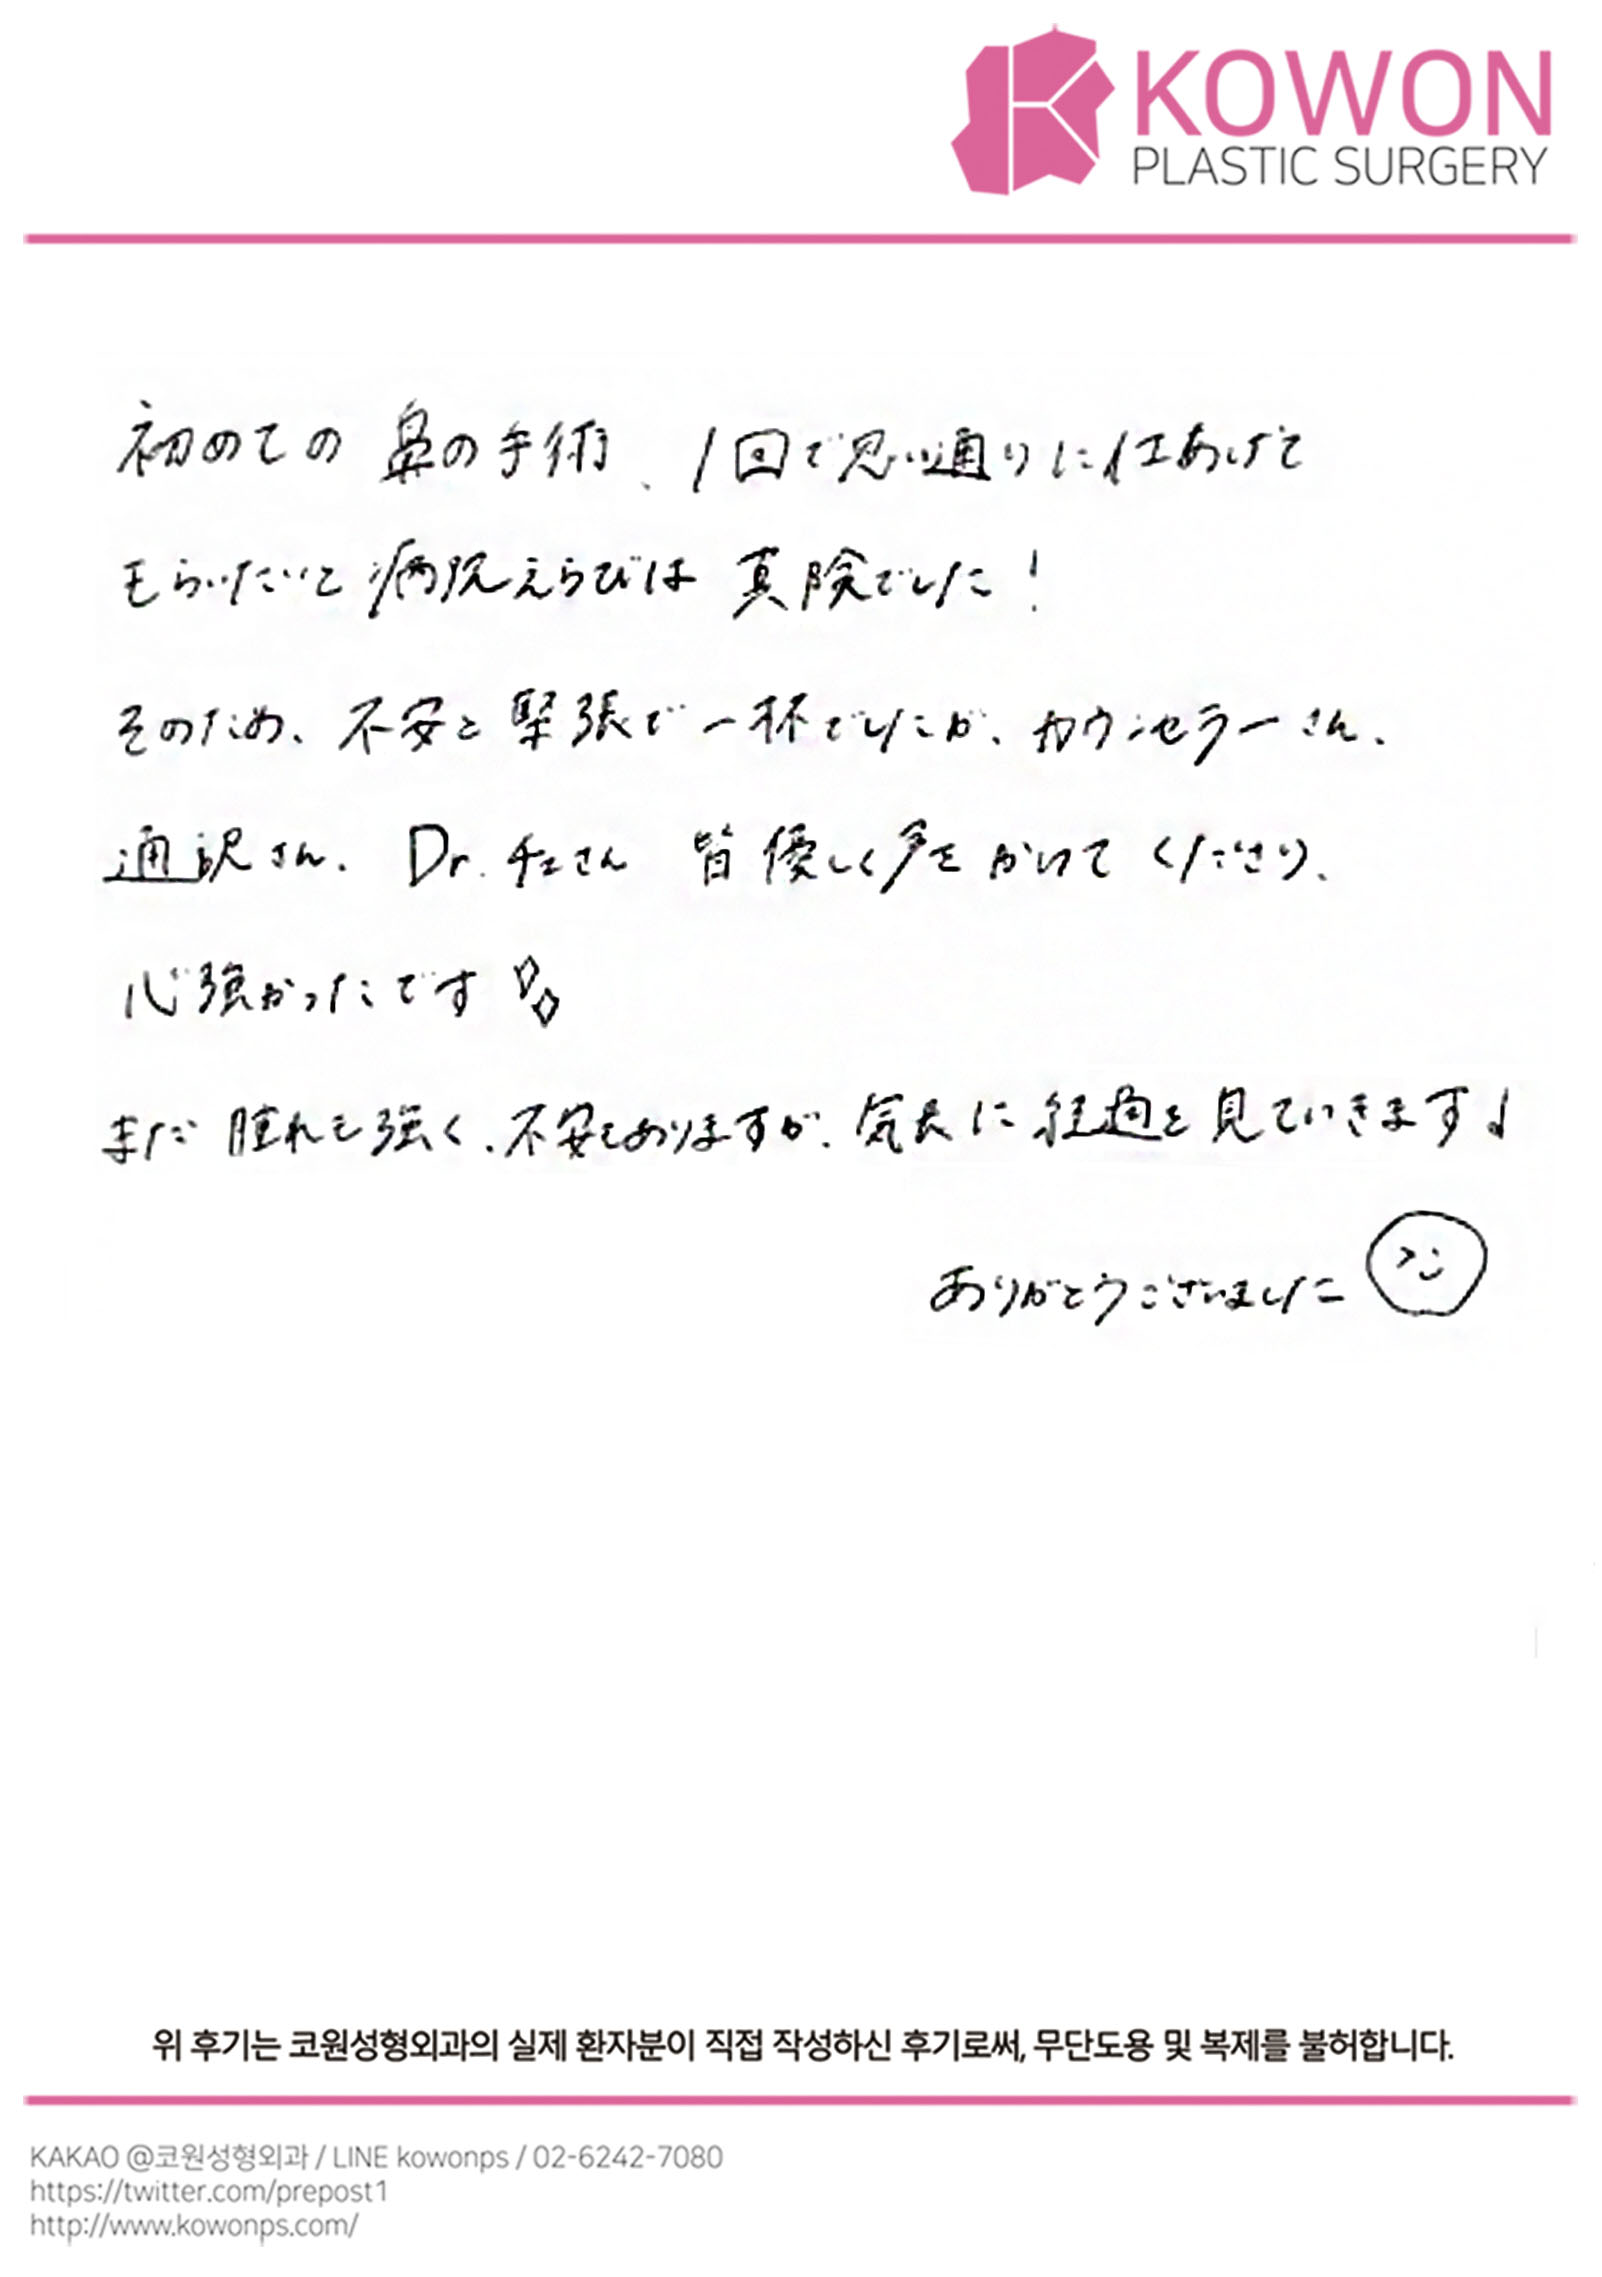 KOWON
PLASTIC SURGERY
初めての鼻の手術、1回で思い通りに仕あげて
もらいたいと病院えらびは真険でした!
そのため、不安と緊張で一杯でしたが、カウンセラーさん、
通訳さん、Dr.チェさん 皆優しく声をかけてくださり、
心強かったです
まだ腫れも強く、不安もありますが、気長に経過を見ていきます♩
ありがとうございました
위 후기는 코원성형외과의 실제 환자분이 직접 작성하신 후기로써, 무단도용 및 복제를 불허합니다.
KAKAO @코원성형외과 / LINE kowonps / 02-6242-7080
https://twitter.com/prepost1
http://www.kowonps.com/